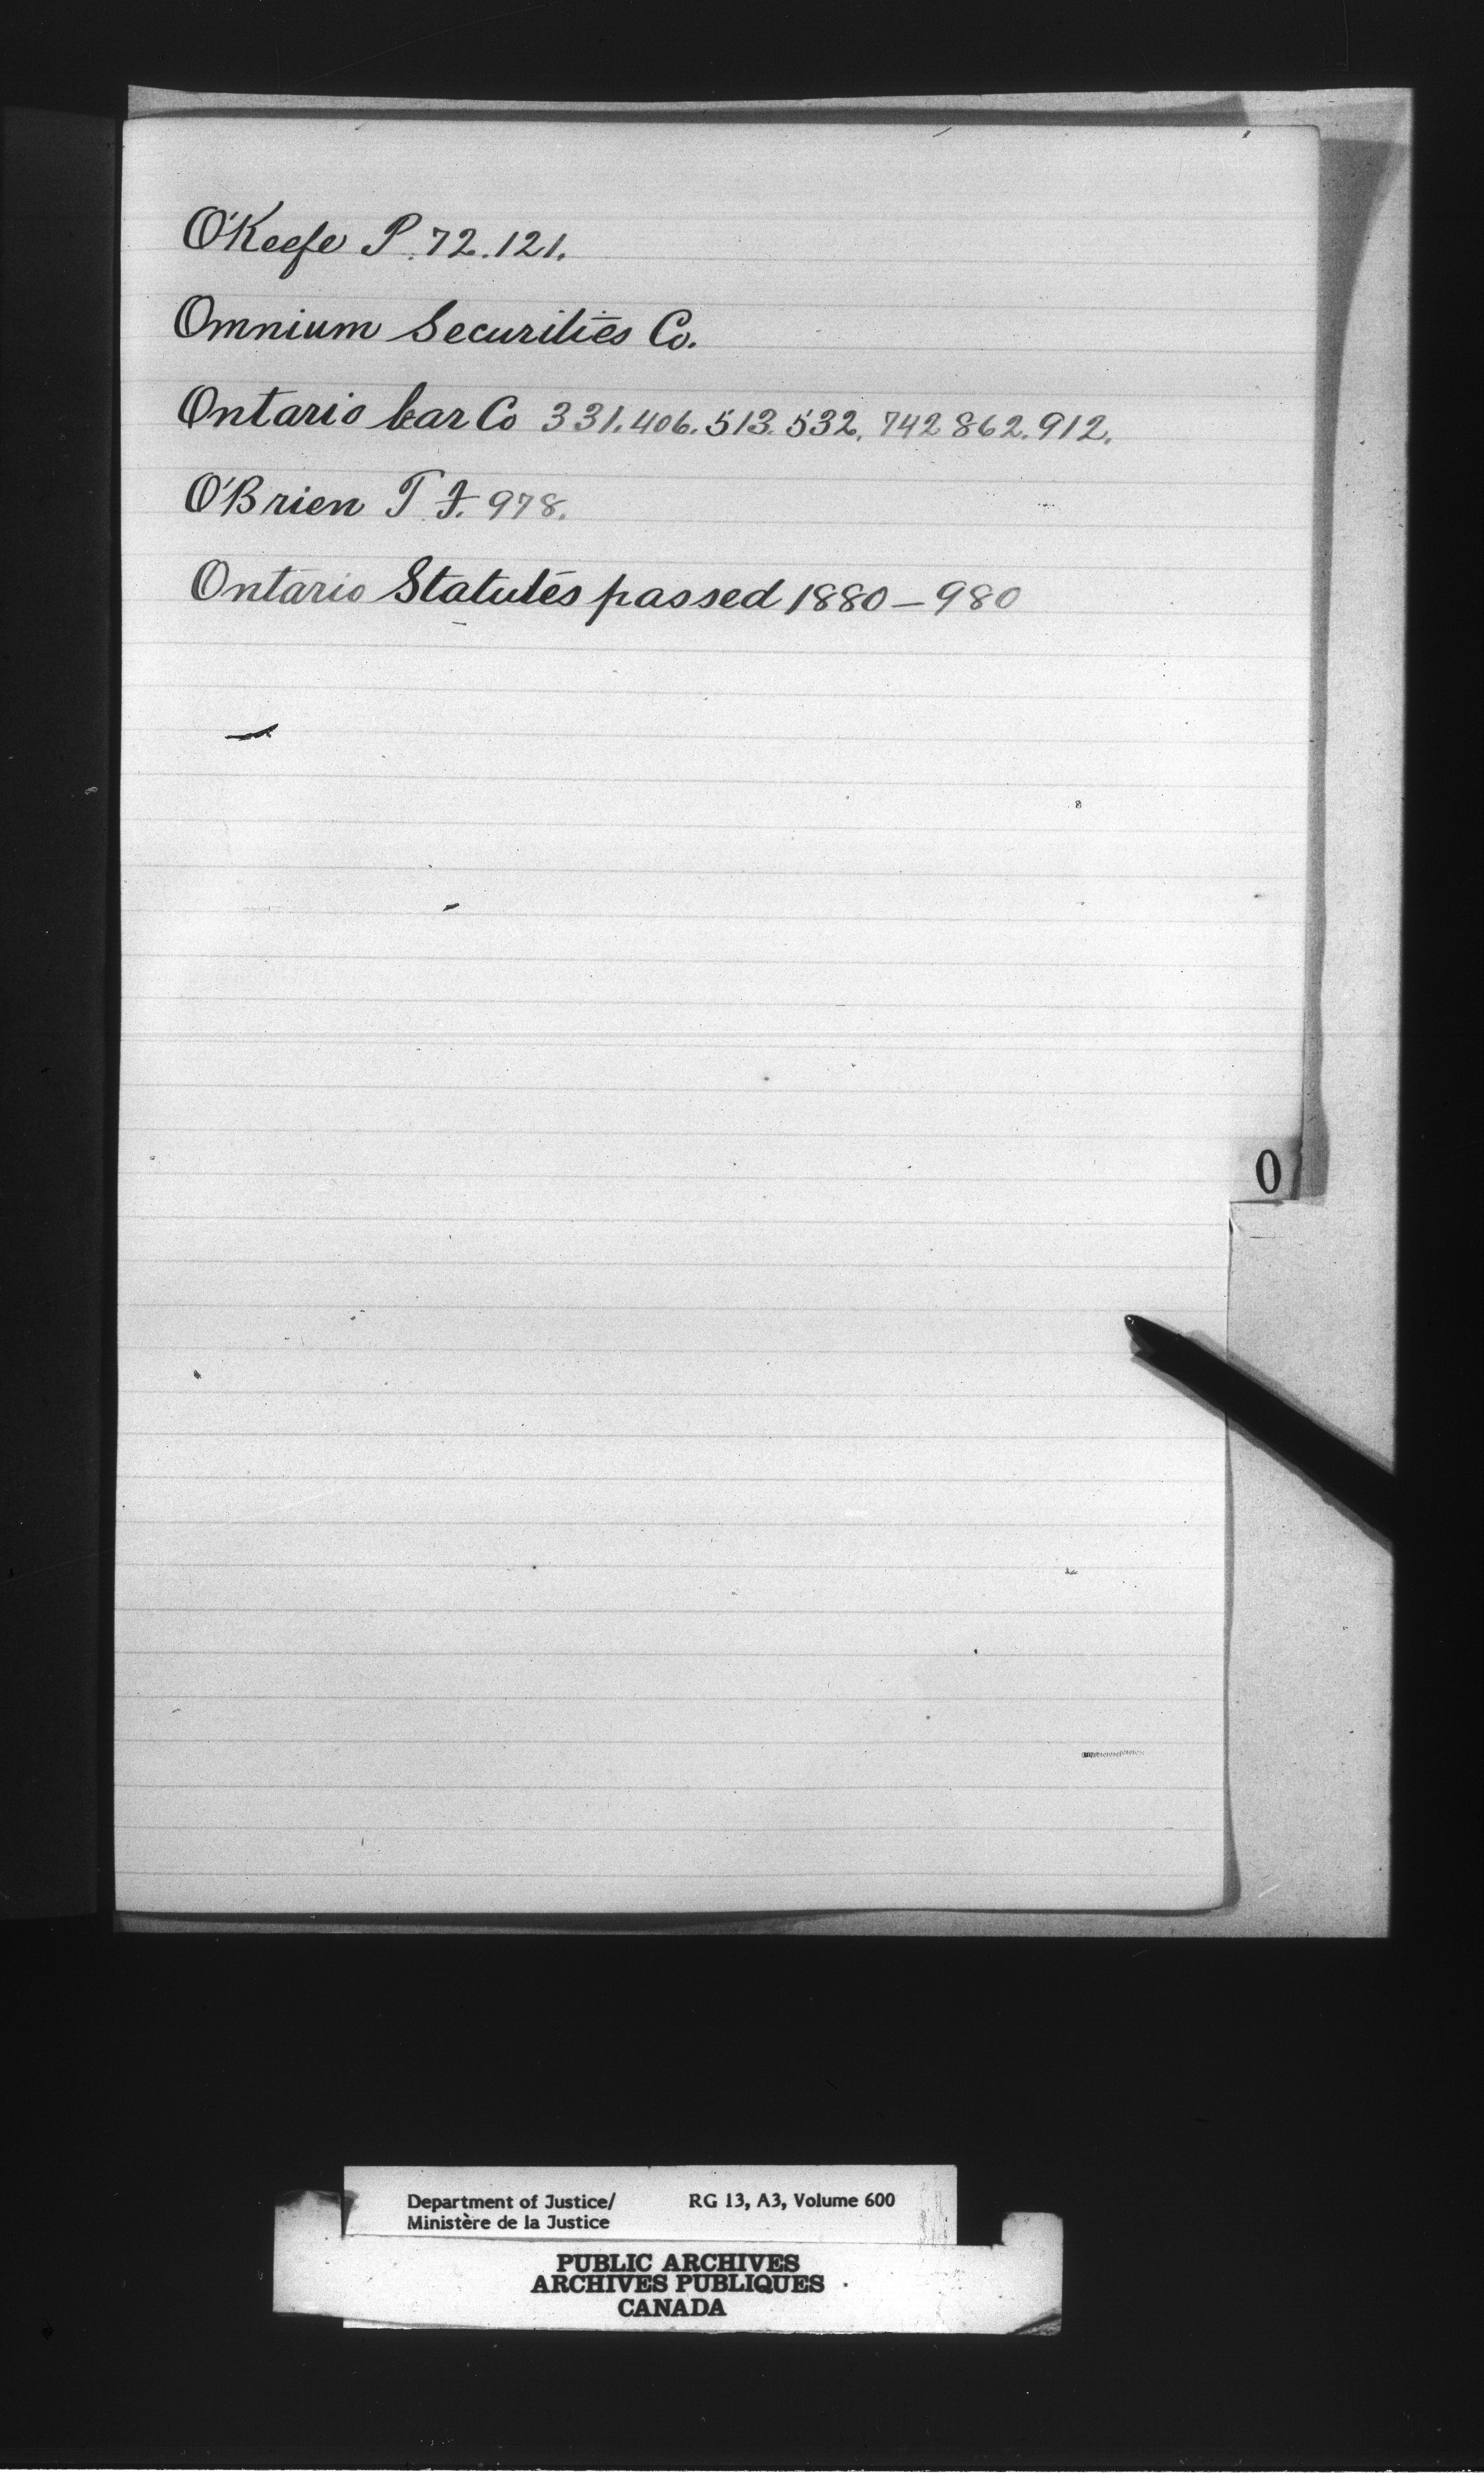 O'Keefe P. 72. 121.
Omnium Securities Co.
Ontario Car Co 331. 406. 513. 532. 742 862. 912.
O'Brien T F. 978.
Ontario Statutes passed 1880 — 980
O
Department of Justice/ RG 13, A3, Volume 600
Ministère de la Justice
PUBLIC ARCHIVES
ARCHIVES PUBLIQUES
CANADA